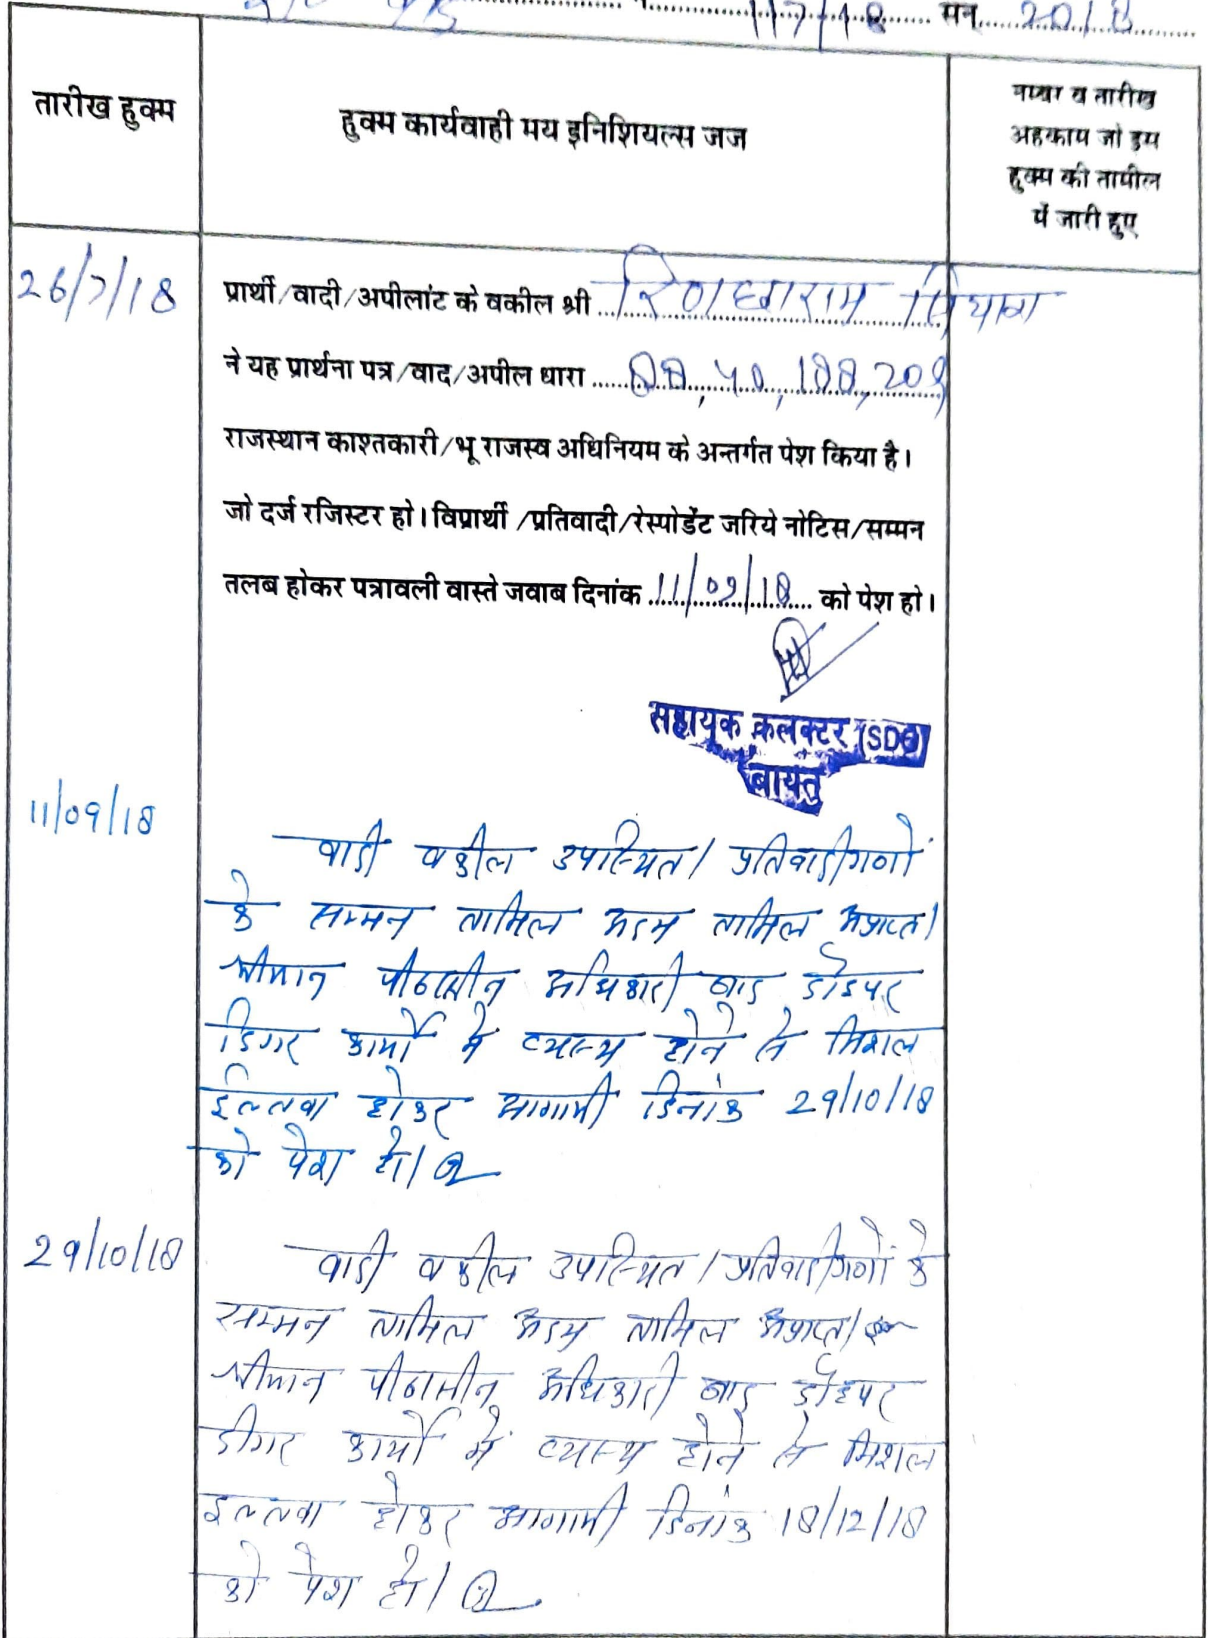 117/18 सन् 2018
तारीख हुक्म
हुक्म कार्यवाही मय इनिशियल्स जज
नम्बर व तारीख
अहकाम जो इस
हुक्म की तामील
में जारी हुए
26/7/18
प्रार्थी/वादी/अपीलांट के वकील श्री रिणछाराम सियाग
ने यह प्रार्थना पत्र/वाद/अपील धारा 88, 40, 188, 209
राजस्थान काश्तकारी/भू राजस्व अधिनियम के अन्तर्गत पेश किया है।
जो दर्ज रजिस्टर हो। विप्रार्थी/प्रतिवादी/रेस्पोडेंट जरिये नोटिस/सम्मन
तलब होकर पत्रावली वास्ते जवाब दिनांक 11/09/18 को पेश हो।
सहायक कलक्टर (SDO)
बायतु
11/09/18
वादी वकील उपस्थित। प्रतिवादीगणों
के सम्मन तामिल अदम तामिल अप्राप्त।
श्रीमान पीठासीन अधिकारी बाद दोहपर
डिगर कार्यो में व्यस्थ होने से मिशल
ईल्तवा होकर आगामी दिनांक 29/10/18
को पेश हो।
29/10/18
वादी वकील उपस्थित। प्रतिवादीगणों के
सम्मन तामिल अदम तामिल अप्राप्त।
श्रीमान पीठासीन अधिकारी बाद दोहपर
डीगर कार्यो में व्यस्थ होने से मिशल
इल्तवा होकर आगामी दिनांक 18/12/18
को पेश हो।